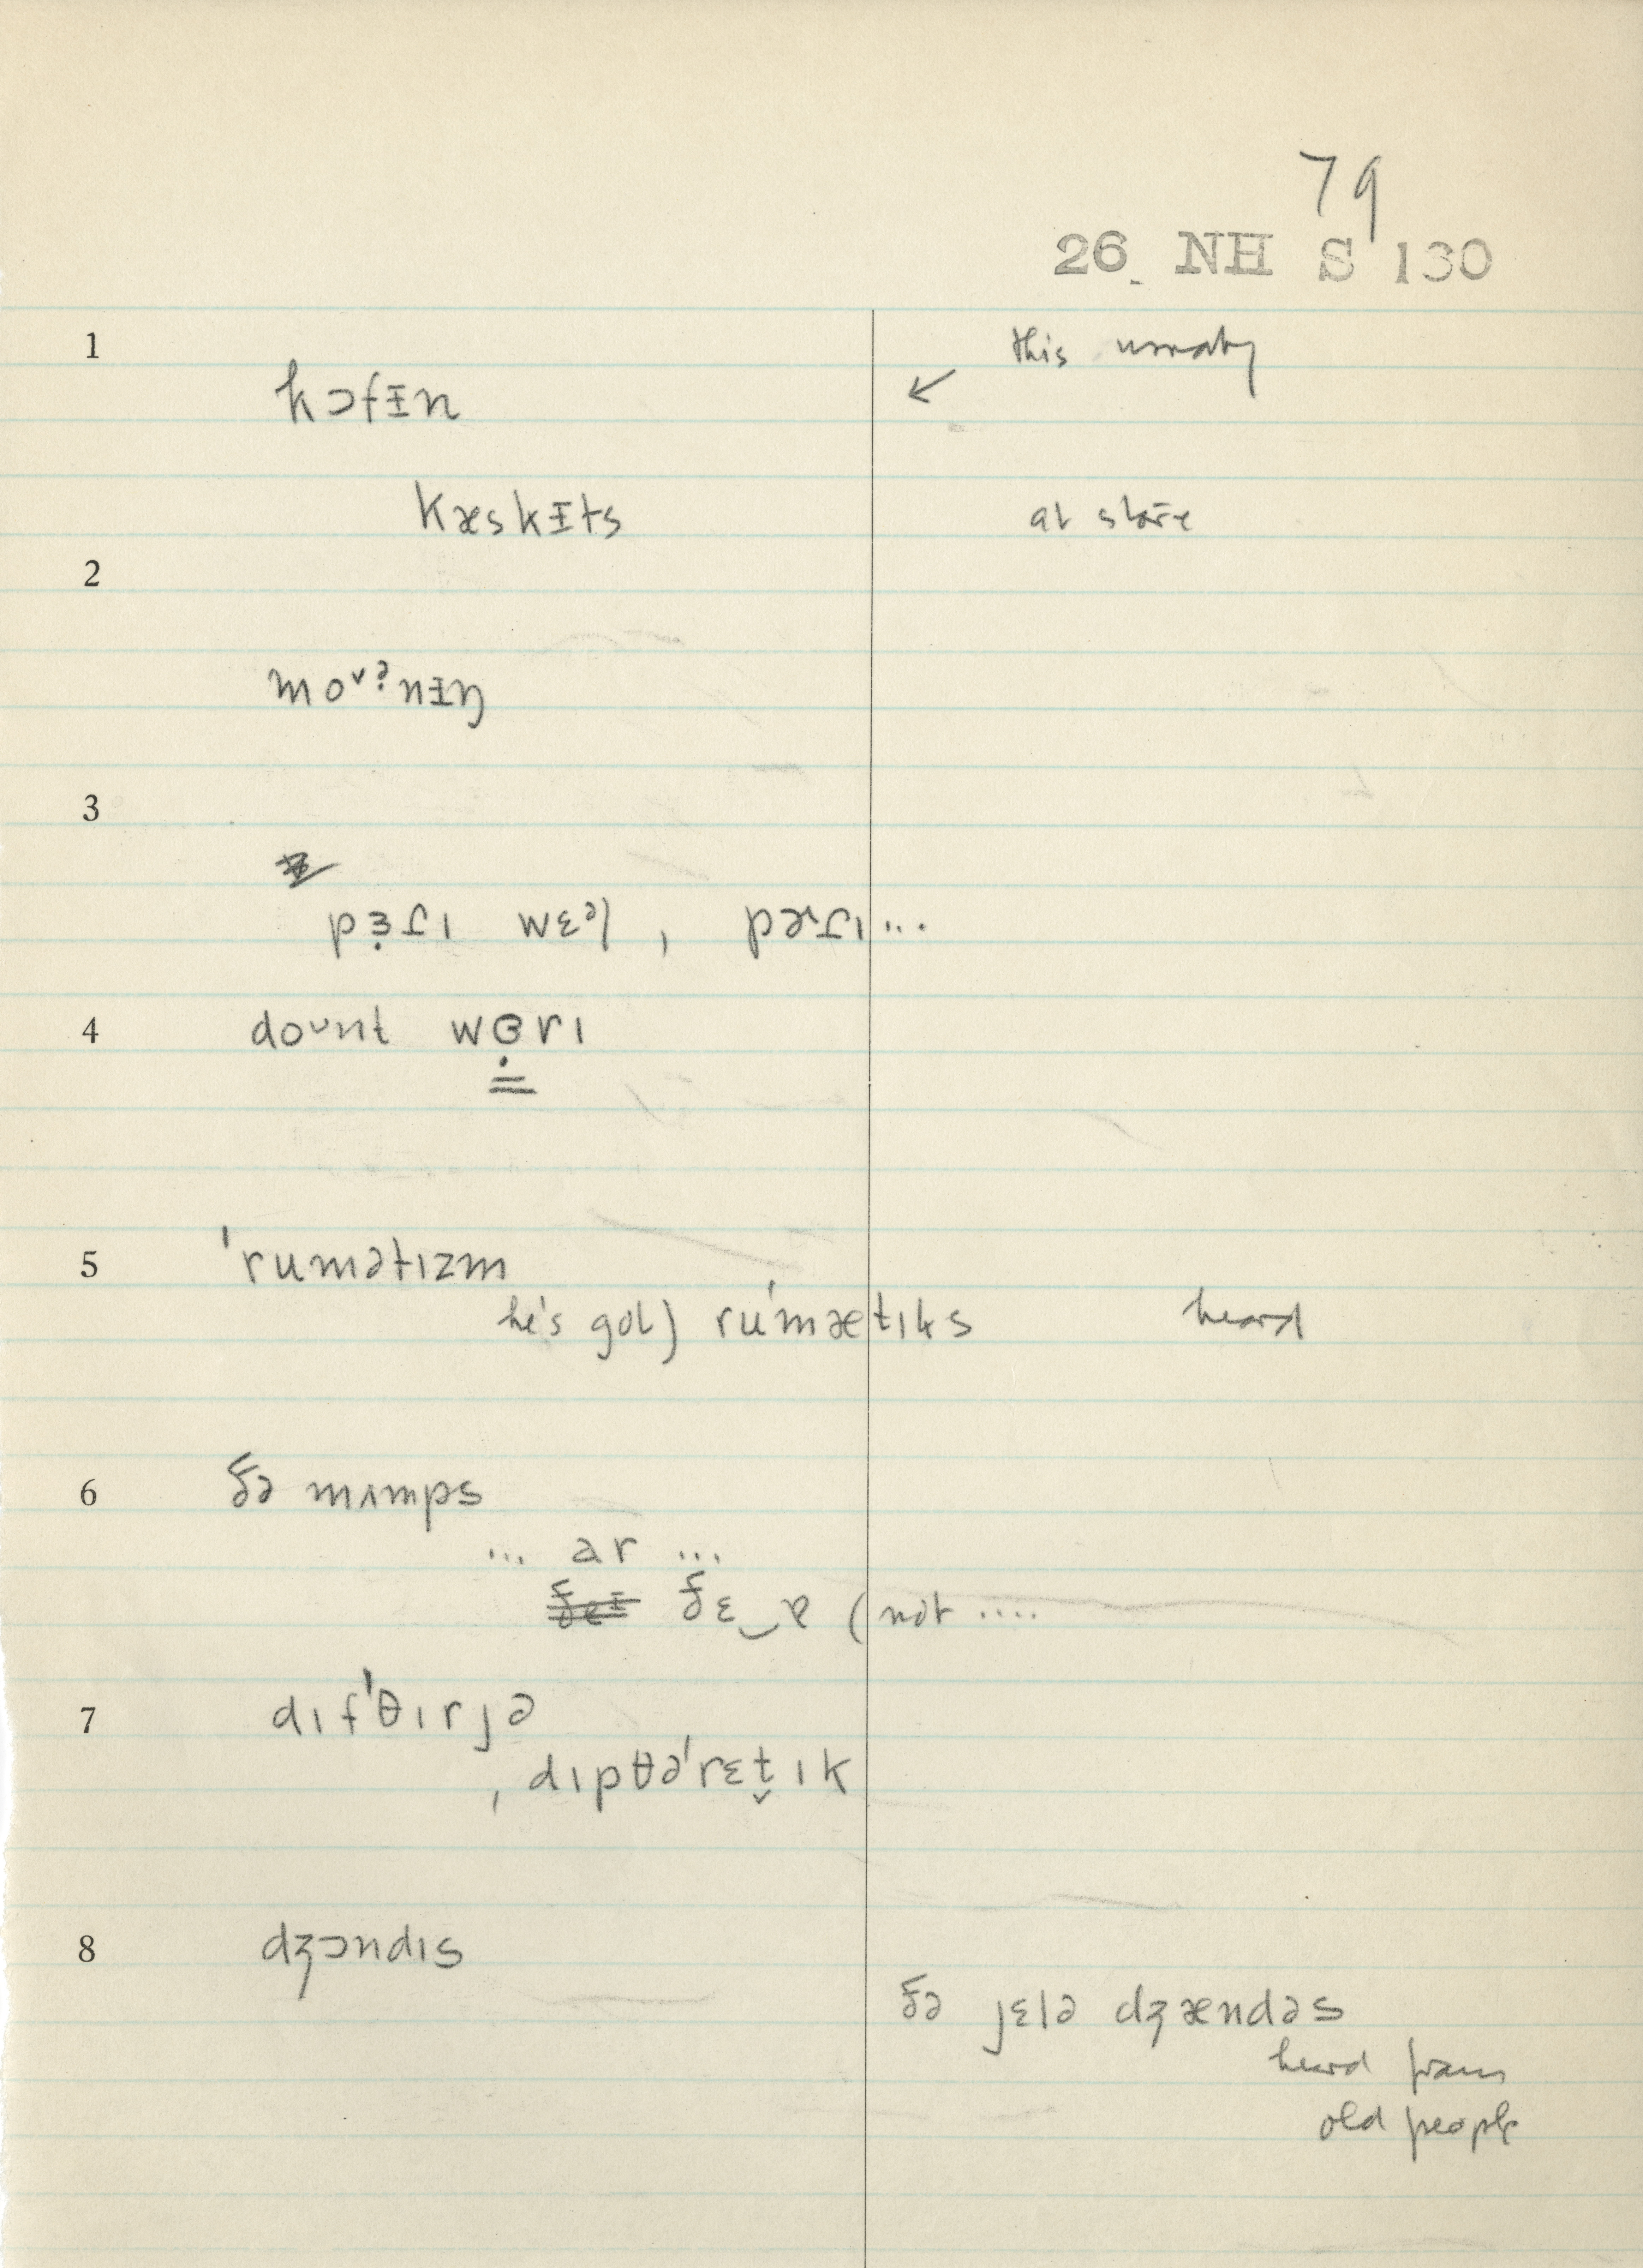 79
26 NH S 130
1 this usually
kɔfᵻn ↙
kæskᵻts at store
2
moᵛˀnᵻŋ
3
wɛᵊl ,
4 doᴜnt wɵ̣rɪ
5 ˈrumətɪzm
he's got) ruˈmætɪks heard
6 ðə mʌmps
... ar ...
(not ....
7 dɪfˈθɪrjə
, dɪpθəˈrɛt̬ɪk
8 dʒɔndɪs
ðə jɛlə dʒændəs
heard from
old people